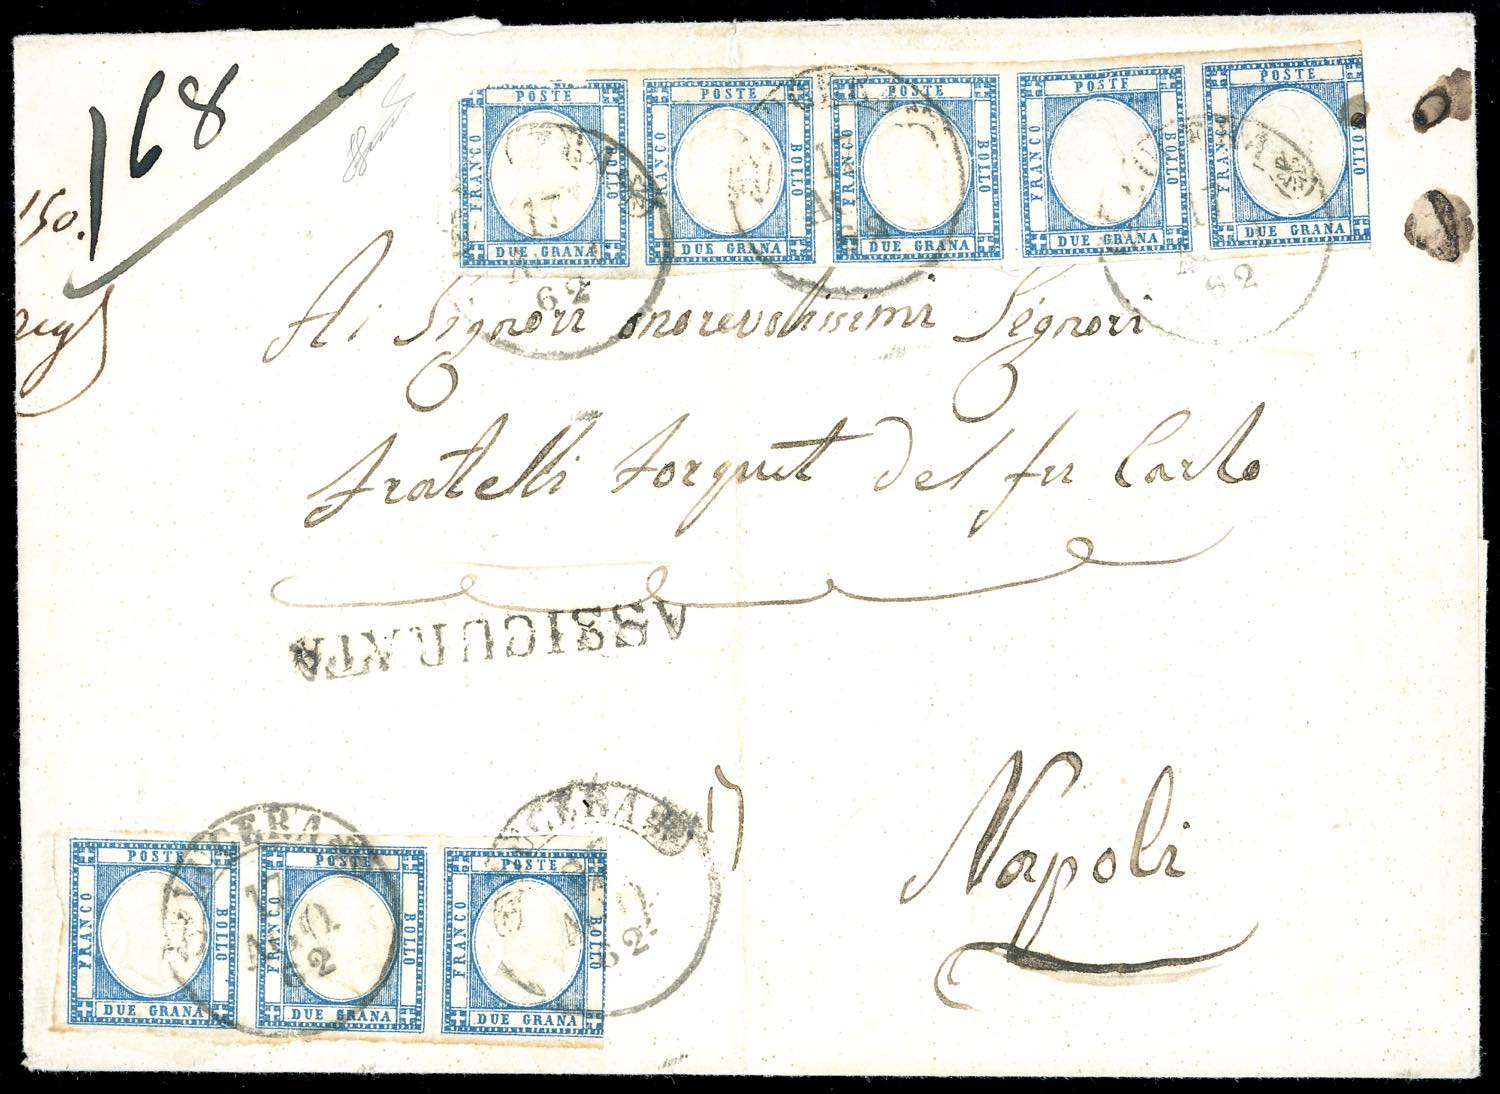 168
150.
POSTE FRANCO BOLLO DUE GRANA
POSTE FRANCO BOLLO DUE GRANA
POSTE FRANCO BOLLO DUE GRANA
POSTE FRANCO BOLLO DUE GRANA
POSTE FRANCO BOLLO DUE GRANA
17
62
62
Ai Signori onorevolissimi Signori
Fratelli Forquet del fu Carlo
ASSICURATA
Napoli
POSTE FRANCO BOLLO DUE GRANA
POSTE FRANCO BOLLO DUE GRANA
POSTE FRANCO BOLLO DUE GRANA
17
AGO
62
AGO
62